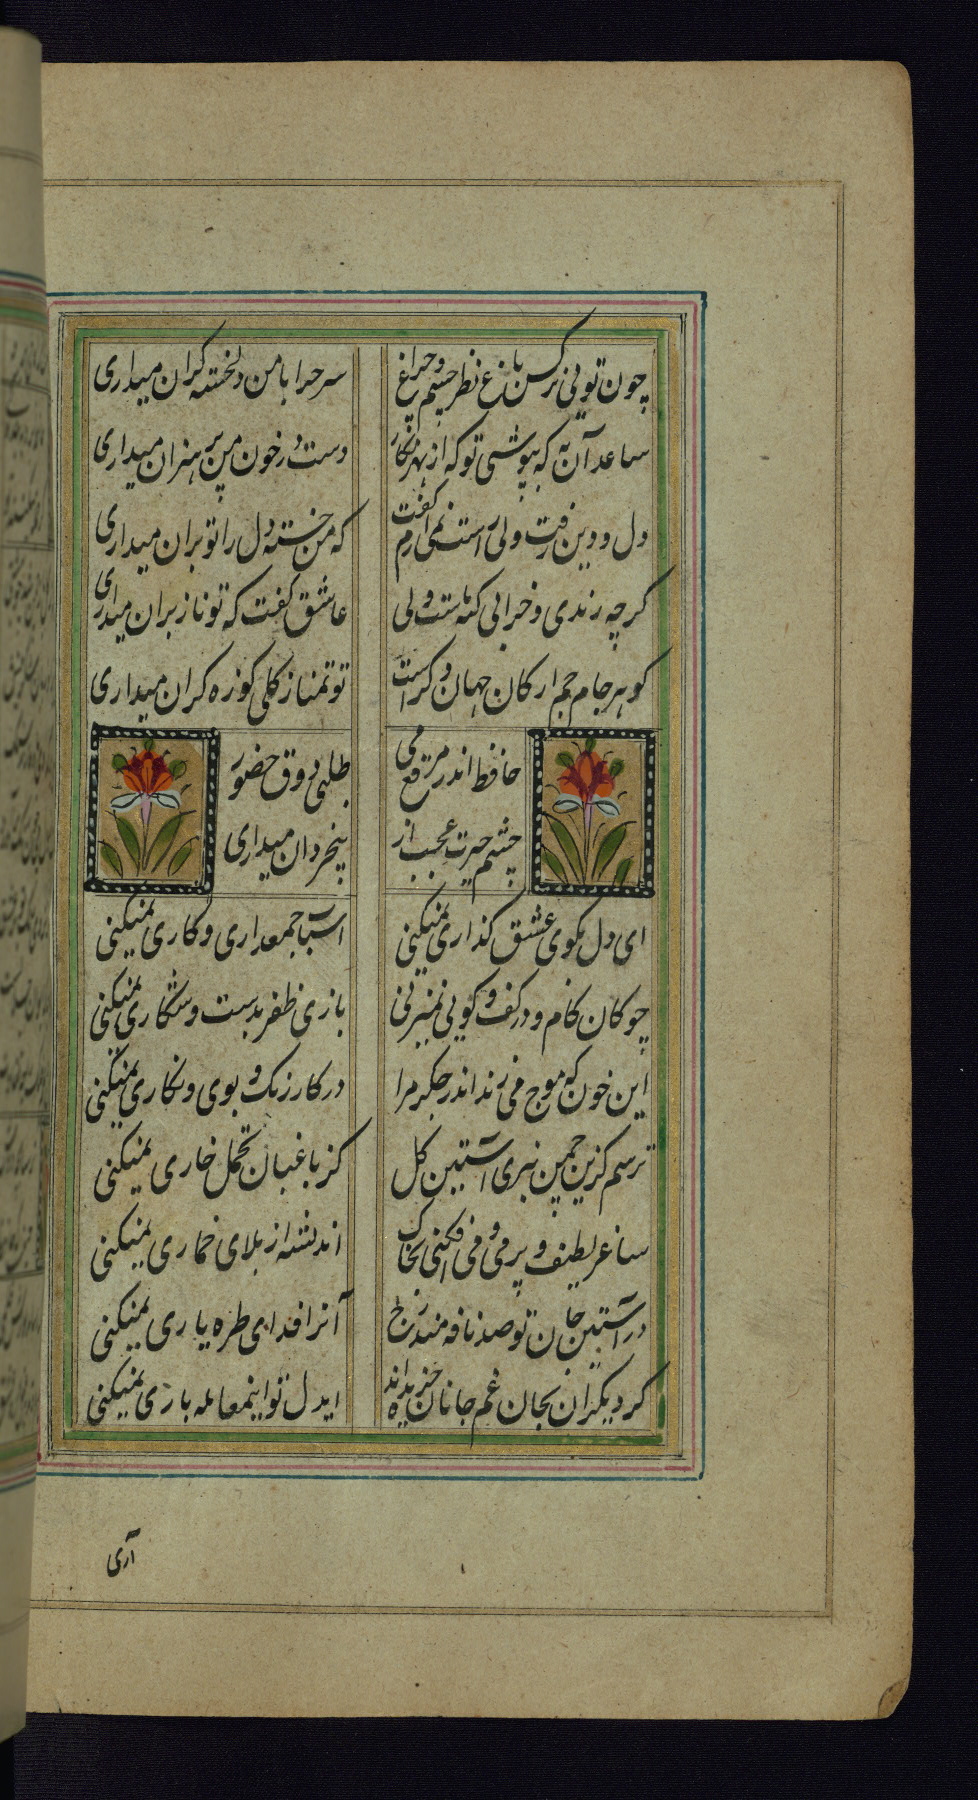 چون تویی نرکس باغ نظر چشم و چراغ سر چرا با من دلخسته کران میداری
ساعد آن به که بپوشی تو که از بهر نکار دست در خون من پر هنران میداری
دل و دین رفت ولی راست نمی آرم کفت که من خسته دل را تو بران میداری
کرچه رندی و خرابی کنه ماست ولی عاشقی کفت که تو ناز بران میداری
کوهر جام جم از کان جهان دکراست تو تمنا ز کلی کوزه کران میداری
حافظ اندر مرقع می طلبی ذوق حضور
چشم حیرت عجب از بیخردان میداری
ای دل بکوی عشق کذاری نمیکنی اسباب جمع داری و کاری نمیکنی
چوکان کام در کف و کویی نمیزنی بازی ظفر بدست و شکاری نمیکنی
این خون که موج می زند اندر جکر مرا در کار رنک و بوی و نکاری نمیکنی
ترسم کزین چمن نبری آستین کل کز باغبان تحمل خاری نمیکنی
ساغر لطیف و پر می و می افکنی بخاک اندیشه از بلای خماری نمیکنی
در آستین جان تو صد نافه مندرج آنرا فدای طره یاری نمیکنی
کر دیکران بجان غم جانان خریده اند ایدل تو اینمعامله باری نمیکنی
آری